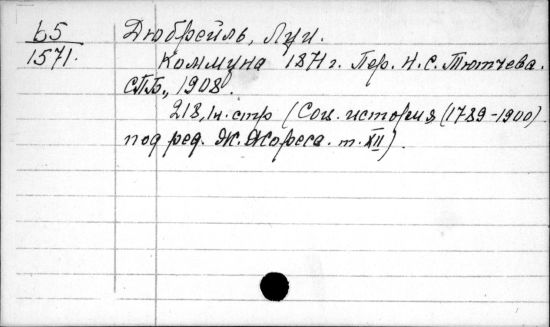 Б5
1571.
Дюбрейль, Луи.
Коммуна 1871 г. Пер. Н. С. Тютчева.
СПБ., 1908.
218, 1 н. стр (Соц. история (1789-1900)
под ред. Ж. Жореса. т. XII).